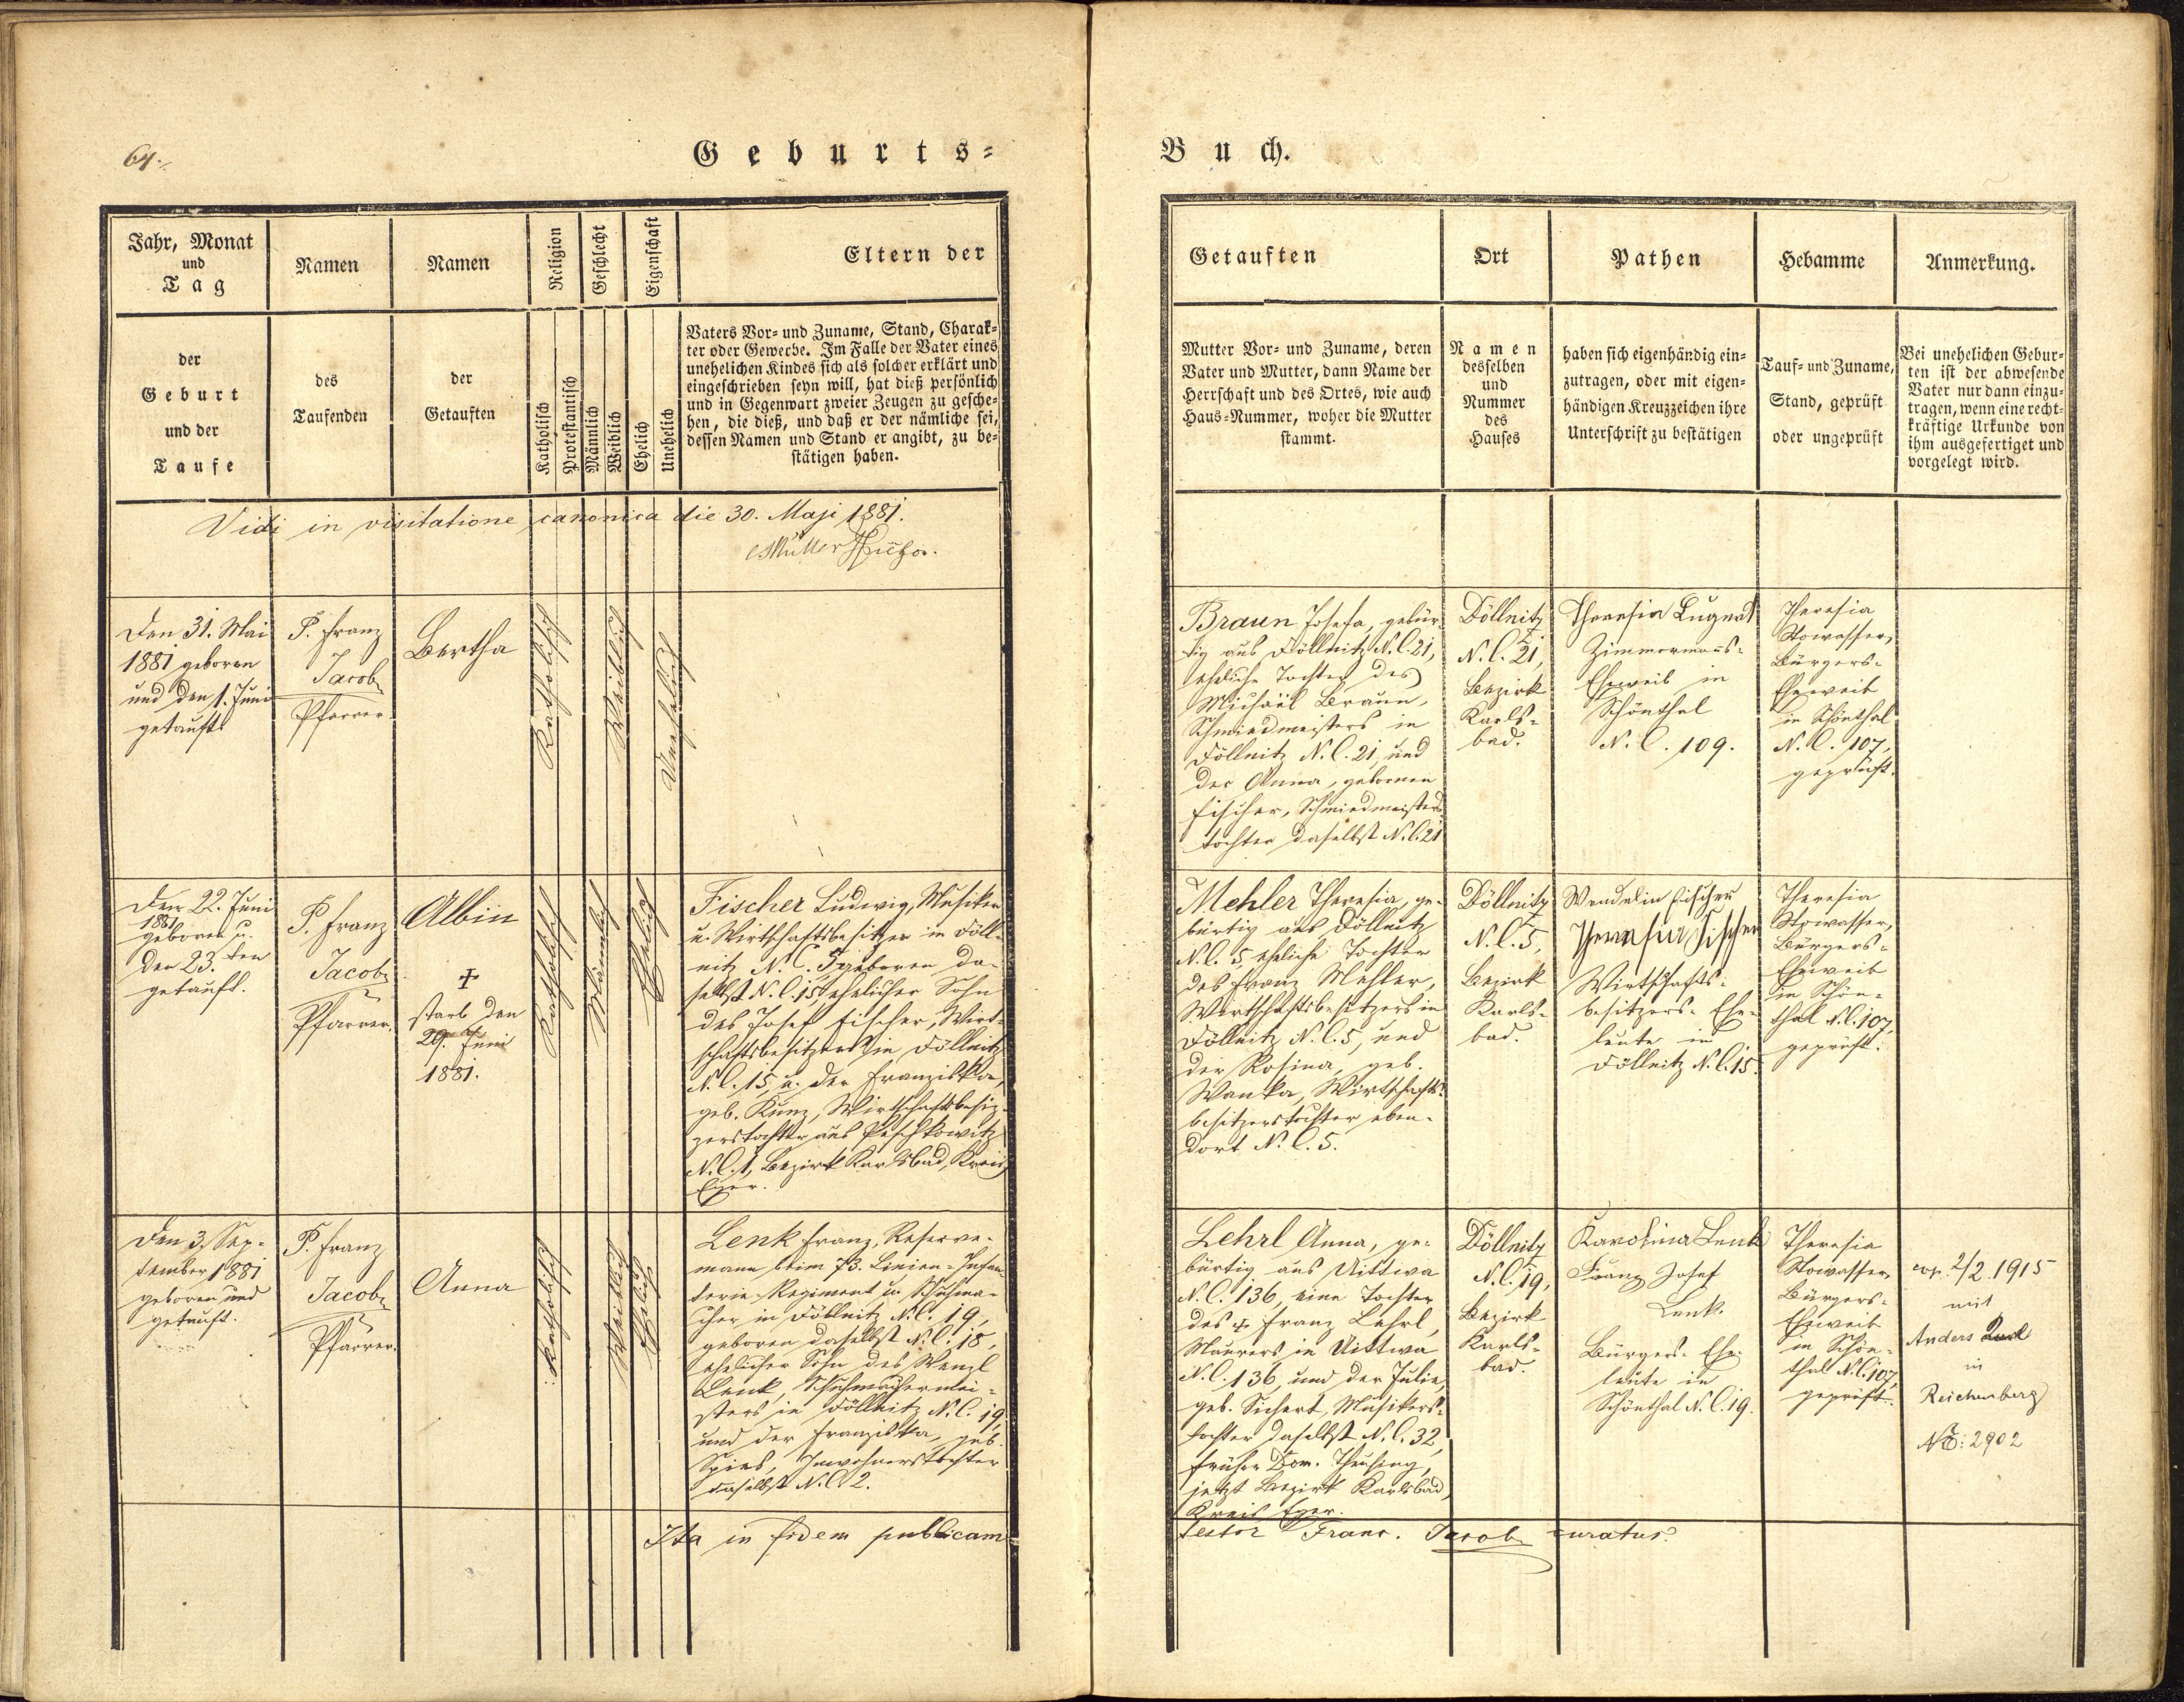 64.
Geburts=
Buch.
Jahr, Monat
und
Tag
Namen
Namen
Religion
Geschlecht
Eigenschaft
Eltern der
der
Geburt
und der
Taufe
des
Taufenden
der
Getauften
Katholisch
Protestantisch
Männlich
Weiblich
Ehelich
Unehelich
Vaters Vor= und Zuname, Stand, Charak=
ter oder Gewerbe. Im Falle der Vater eines
unehelichen Kindes sich als solcher erklärt und
eingeschrieben seyn will, hat dieß persönlich
und in Gegenwart zweier Zeugen zu gesche=
hen, die dieß, und daß er der nämliche sei,
dessen Namen und Stand er angibt, zu be=
stätigen haben.
Getauften
Ort
Pathen
Hebamme
Anmerkung.
Mutter Vor= und Zuname, deren
Vater und Mutter, dann Name der
Herrschaft und des Ortes, wie auch
Haus=Nummer, woher die Mutter
stammt.
Namen
desselben
und
Nummer
des
Hauses
haben sich eigenhändig ein=
zutragen, oder mit eigen=
händigen Kreuzzeichen ihre
Unterschrift zu bestätigen
Tauf= und Zuname,
Stand, geprüft
oder ungeprüft
Bei unehelichen Gebur=
ten ist der abwesende
Vater nur dann einzu=
tragen, wenn eine recht=
kräftige Urkunde von
ihm ausgefertiget und
vorgelegt wird.
Vidi in visitatione canonica die 30. Maji 1881.
Müller
Den 31. Mai
1881 geboren
und den 1. Juni
getauft
P. Franz
Jacob
Pfarrer.
Bertha
Katholisch
Weiblich
Unehelich
Braun Josefa, gebür=
tig aus Döllnitz N.C. 21,
eheliche Tochter des
Michael Braun,
Schmiedmeisters in
Döllnitz N.C. 21, und
der Anna, gebornen
Fischer, Schmiedmeisters=
tochter daselbst N.C. 21
Döllnitz
N.C. 21,
Bezirk
Karls=
bad.
Theresia Lugert
Zimmermanns=
Eheweib in
Schönthal
N.C. 109.
Theresia
Stowasser,
Bürgers=
Eheweib
in Schönthal
N.C. 107,
geprüft.
Den 22. Juni
1881
geboren u.
den 23. ten
getauft.
P. Franz
Jacob
Pfarrer.
Albin
+
starb den
29. Juni
1881.
Katholisch
Männlich
Ehelich
Fischer Ludwig, Musiker
u. Wirthschaftsbesitzer in Döll=
nitz N.C. 5 geboren da=
selbst N.C. 15 ehelicher Sohn
des Josef Fischer, Wirt=
schaftsbesitzers in Döllnitz
N.C. 15, u. der Franziska,
geb. Kunz, Wirthschaftsbesit=
zerstochter aus Peschkowitz
N.C. 1, Bezirk Karlsbad, Kreis
Eger.
Mehler Theresia, ge=
bürtig aus Döllnitz
N.C. 5, eheliche Tochter
des Franz Mehler,
Wirthschaftsbesitzers in
Döllnitz N.C. 5, und
der Rosina, geb.
Wanka, Wirthschafts=
besitzerstochter eben=
dort N.C. 5.
Döllnitz
N.C. 5,
Bezirk
Karls=
bad.
Wendelin Fischer
Theresia Fischer
Wirtschafts=
besitzers= Ehe=
leute in
Döllnitz N.C. 15.
Theresia
Stowasser,
Bürgers=
Eheweib
in Schön=
thal N.C. 107,
geprüft.
Den 3. Sep=
tember 1881
geboren und
getauft.
P. Franz
Jacob
Pfarrer.
Anna
Katholisch
Weiblich
Ehelich
Lenk Franz, Reserve=
mann beim 73. Linien=Infan=
terie=Regiment u. Schuhma=
cher in Döllnitz N.C. 19,
geboren daselbst N.C. 18,
ehelicher Sohn des Wenzl
Lenk, Schuhmachermei=
sters in Döllnitz N.C. 19,
und der Franziska, geb.
Spies, Inwohnerstochter
daselbst N.C. 2.
Lehrl Anna, ge=
bürtig aus Uittwa
N.C. 136, eine Tochter
des + Franz Lehrl,
Maurers in Uittwa
N.C. 136, und der Julie,
geb. Sichert, Musikers=
tochter daselbst N.C. 32,
früher Dom. Theusing,
jetzt Bezirk Karlsbad,
Kreis Eger.
Döllnitz
N.C. 19,
Bezirk
Karls=
bad.
Karolina Lenk
Franz Josef
Lenk.
Bürgers= Ehe=
leute in
Schönthal N.C. 19.
Theresia
Stowasser
Bürgers=
Eheweib
in Schön=
thal N.C. 107,
geprüft.
cop. 2/2. 1915
mit
Anders
in
Reichenberg
No: 2902
Ita in fidem publicam
testor Franc. Jacob curatus.